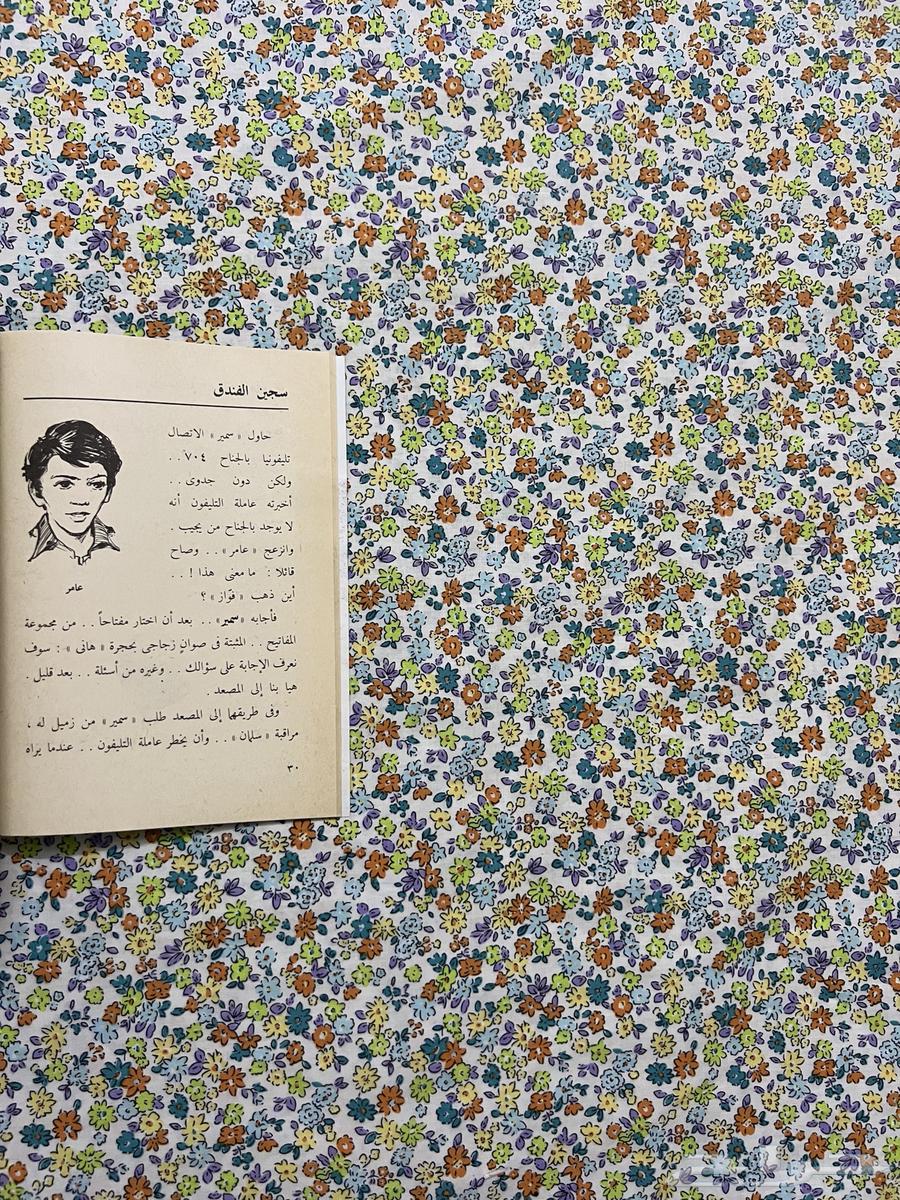 سجين الفندق
حاول « سمير » الاتصال
تليفونيا بالجناح ٧٠٤ . .
ولكن دون جدوى . .
أخبرته عاملة التليفون أنه
لا يوجد بالجناح من يجيب .
وانزعج « عامر » . . وصاح
قائلا : ما معنى هذا ! . .
أين ذهب « فوّاز » ؟
عامر
فأجابه « سمير » . . بعد أن اختار مفتاحاً . . من مجموعة
المفاتيح . . المثبتة فى صوان زجاجى بحجرة « هانى » : سوف
نعرف الإجابة على سؤالك . . وغيره من أسئلة . . بعد قليل .
هيا بنا إلى المصعد .
وفى طريقهما إلى المصعد طلب « سمير » من زميل له ،
مراقبة « سلمان » . . وأن يخطر عاملة التليفون . . عندما يراه
٣٠